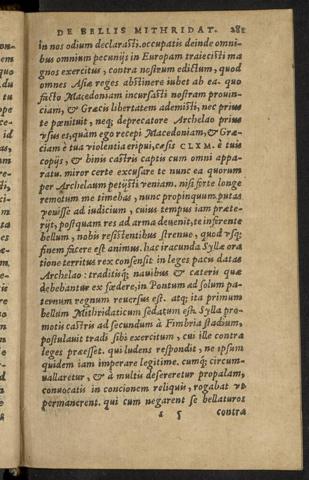 DE BELLIS MITHRIDAT. 281
in nos odium declarasti. occupatis deinde omni-
bus omnium pecunijs in Europam traiecisti ma
gnos exercitus, contra nostrum edictum, quod
omnes Asiæ reges abstinere iubet ab ea. quo
facto Macedoniam incursasti nostram prouin-
ciam, & Græcis libertatem ademisti, nec prius
te pœnituit, neq; deprecatore Archelao prius
vsus es, quàm ego recepi Macedoniam, & Græ-
ciam è tua violentia eripui, cæsis CLXM. è tuis
copijs, & binis castris captis cum omni appa-
ratu. miror certe excusare te nunc ea quorum
per Archelaum petijsti veniam. nisi forte longe
remotum me timebas, nunc propinquum putas
venisse ad iudicium, cuius tempus iam præte-
rijt, postquam res ad arma deuenit, te inferente
bellum, nobis resistentibus strenuo, quod vsq;
finem facere est animus. hac iracunda Syllæ ora
tione territus rex consensit in leges pacu datas
Archelao: traditisq; nauibus & cæteris quæ
debebantur ex fœdere, in Pontum ad solum pa-
ternum regnum reuersus est. atq; ita primum
bellum Mithridaticum sedatum est. Sylla pro-
motis castris ad secundum à Fimbria stadium,
postulauit tradi sibi exercitum, cui ille contra
leges præesset. qui ludens respondit, ne ipsum
quidem iam imperare legitime. cumq; circum-
uallaretur, & à multis desereretur propalam,
conuocatis in concionem reliquis, rogabat vt
permanerent. qui cum negarent se bellaturos
s 5 contra